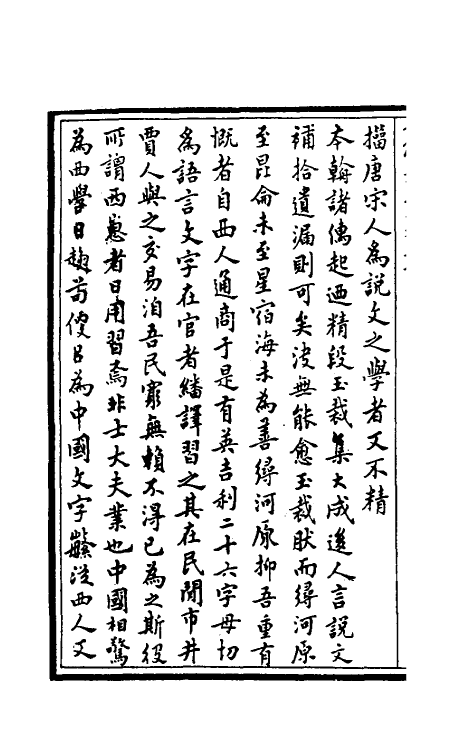 摛唐宋人為說文之學者又不精
本翰諸儁起迺精段玉裁集大成後人言說文
補拾遺漏則可矣洨無能愈玉裁肰而得河原
至昆侖未至星宿海未為善得河原抑吾重有
慨者自西人通商于是有英吉利二十六字母切
為語言文字在官者繙譯習之其在民間市井
賈人與之交易洎吾民窮無賴不得已為之斯役
所謂西崽者日用習焉非士大夫業也中國相驚
為西學日趨茍傻㠯為中國文字䌓從西人又